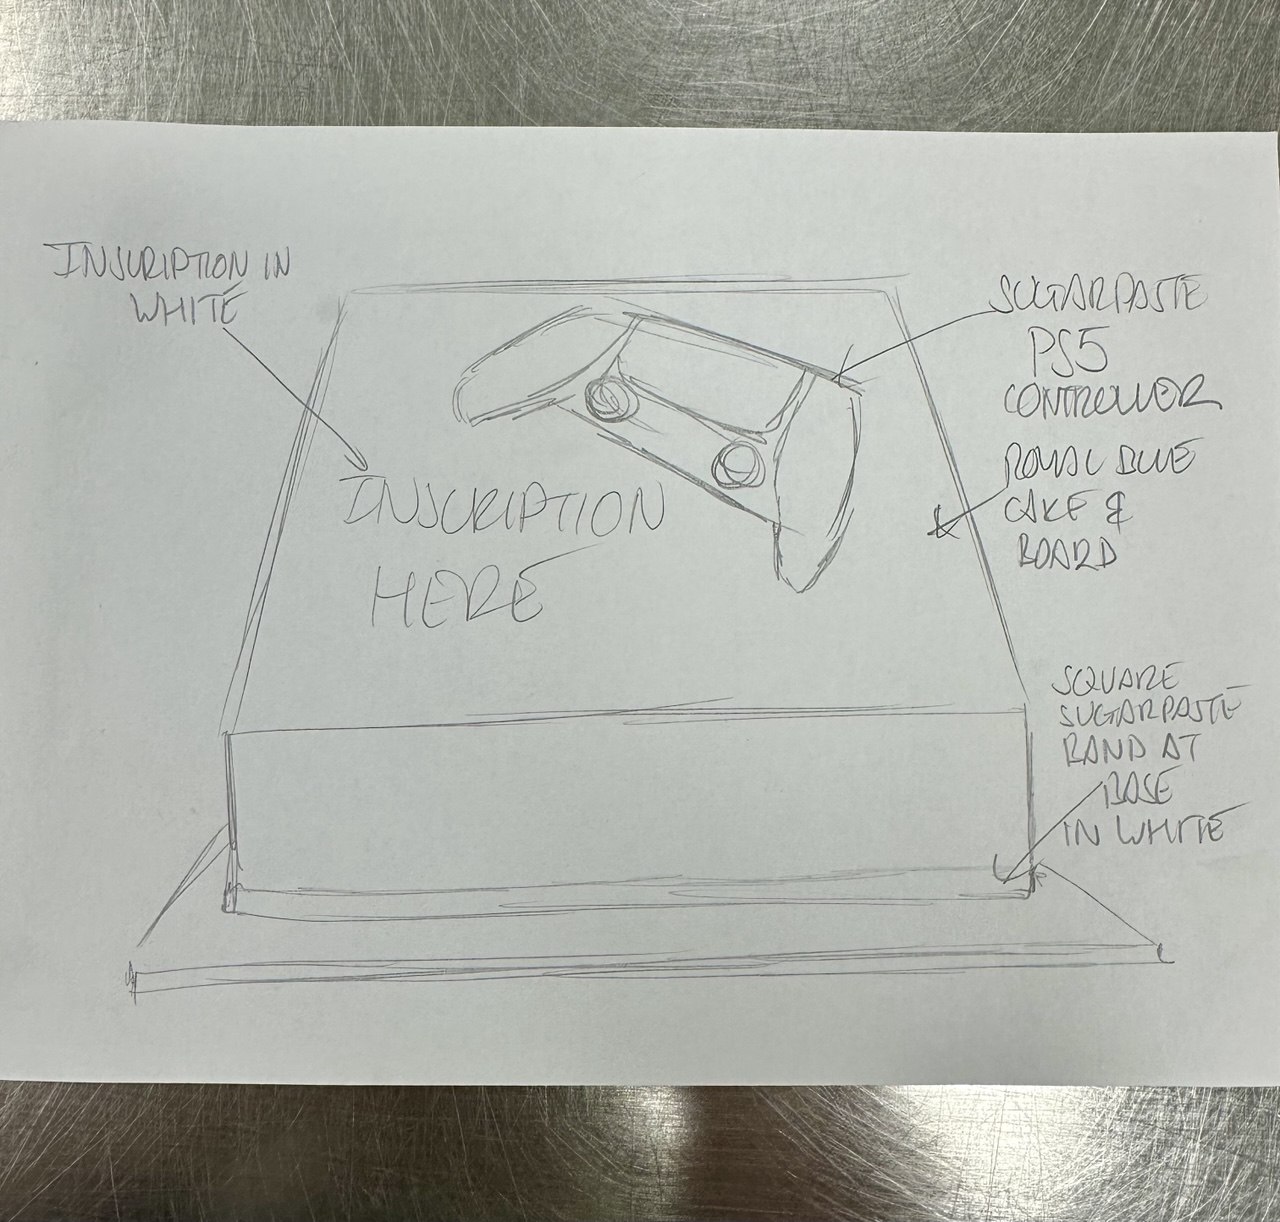 INSCRIPTION IN
WHITE
INSCRIPTION
HERE
SUGARPASTE
PS5
CONTROLLER
ROYAL BLUE
CAKE &
BOARD
SQUARE
SUGARPASTE
BAND AT
BASE
IN WHITE